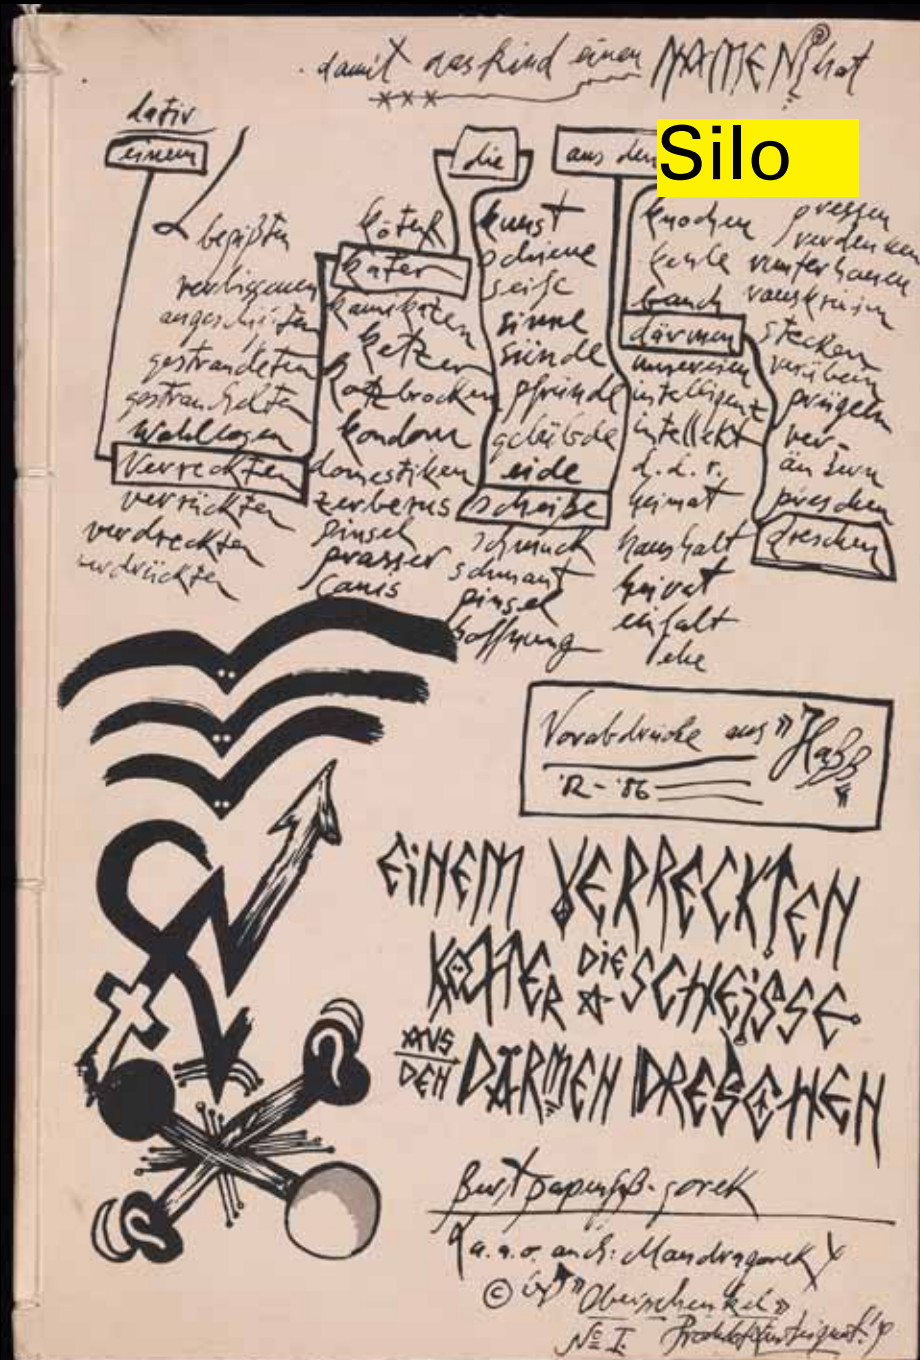 damit das kind einen NAMEN hat
dativ
einem
die
aus den
Silo
begipsten
verbissenen
gestrandeten
gestrauchelten
wahllosen
verreckten
verrückten
verdreckten
verdrückten
köter
kater
kamikazen
ketzer
kotzbrocken
kondom
domestiken
zerberus
pinsel
prasser
canis
kunst
schiene
seife
sinne
sünde
pfründe
gelübde
eide
scheiße
schmuck
schmant
pinsel
hoffnung
knochen
keule
bauch
därmen
unwesen
intelligenz
intellekt
d.d.r.
heimat
haushalt
heirat
einfalt
ehe
pressen
verdenken
runterhauen
stecken
verübeln
prügeln
ver-
änstern
preschen
dreschen
Vorabdrucke aus "Haßß"
'82-'86
EINEM VERRECKTEN
KÖTER DIE SCHEISSE
AUS DEN DÄRMEN DRESCHEN
Bert papenfuß-gorek
(a.a.o. auch: Mandragorek)
© by "Oberschenkel"
No I.